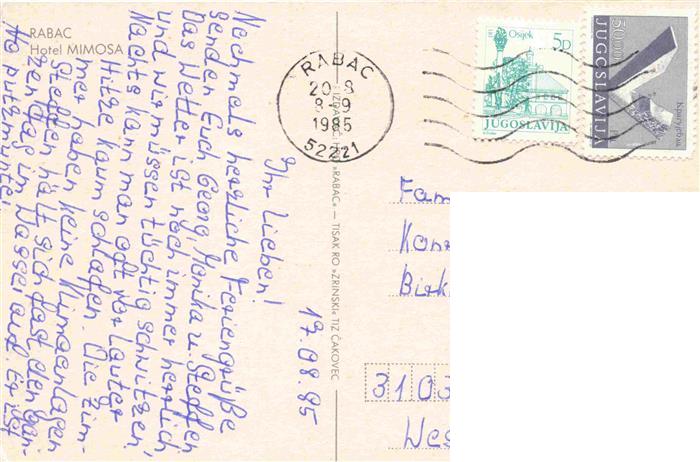 RABAC
Hotel MIMOSA
17.08.85
Ihr Lieben!
Nochmals herzliche Feriengrüße
senden Euch Georg, Monika u. Steffen
Das Wetter ist noch immer herrlich
und wir müssen tüchtig schwitzen,
Nachts kann man oft vor lauter
Hitze kaum schlafen. Die Zim-
mer haben keine Klimaanlagen
Steffen hält sich fast den gan-
zen Tag im Wasser auf. Er ist
putzmunter
«RABAC» — TISAK RO »ZRINSKI« TIZ ČAKOVEC
RABAC
20-8
8-19
1985
52221
Osjek
5D
JUGOSLAVIJA
50
JUGOSLAVIJA
Крагујевац
Fam
Kon
Birk
3103
Wes